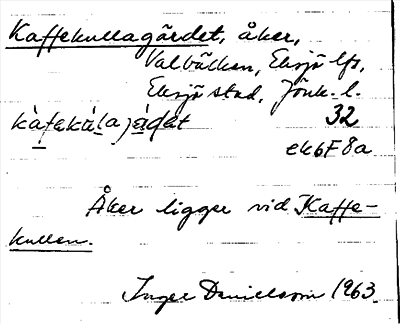 Kaffekullagärdet, åker,
Valbäcken, Eksjö lfs,
Eksjö stad, Jönk. l.
32
ek6F8a
Åker ligger vid Kaffe-
kullen.
Inger Danielsson 1963.